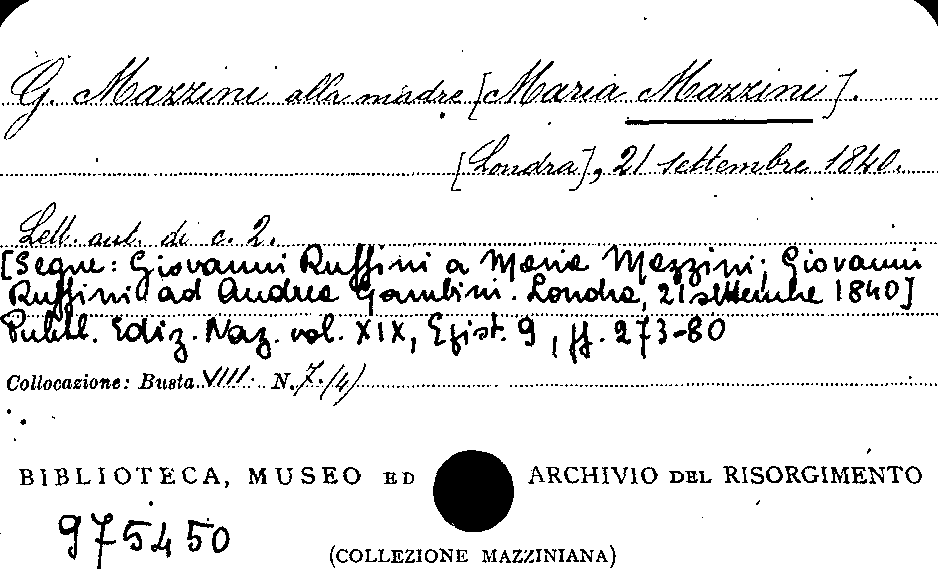 G. Mazzini alla madre [Maria Mazzini].
[Londra], 21 settembre 1840.
Lett. aut. di c. 2.
[Segue: Giovanni Ruffini a Maria Mazzini; Giovanni
Ruffini ad Andrea Gambini. Londra, 21 settembre 1840]
Pubbl. Ediz. Naz. vol. XIX, Epist. 9, pp. 273-80
Collocazione: Busta VIII N. 7. (4)
BIBLIOTECA, MUSEO ED ARCHIVIO DEL RISORGIMENTO
975450
(COLLEZIONE MAZZINIANA)